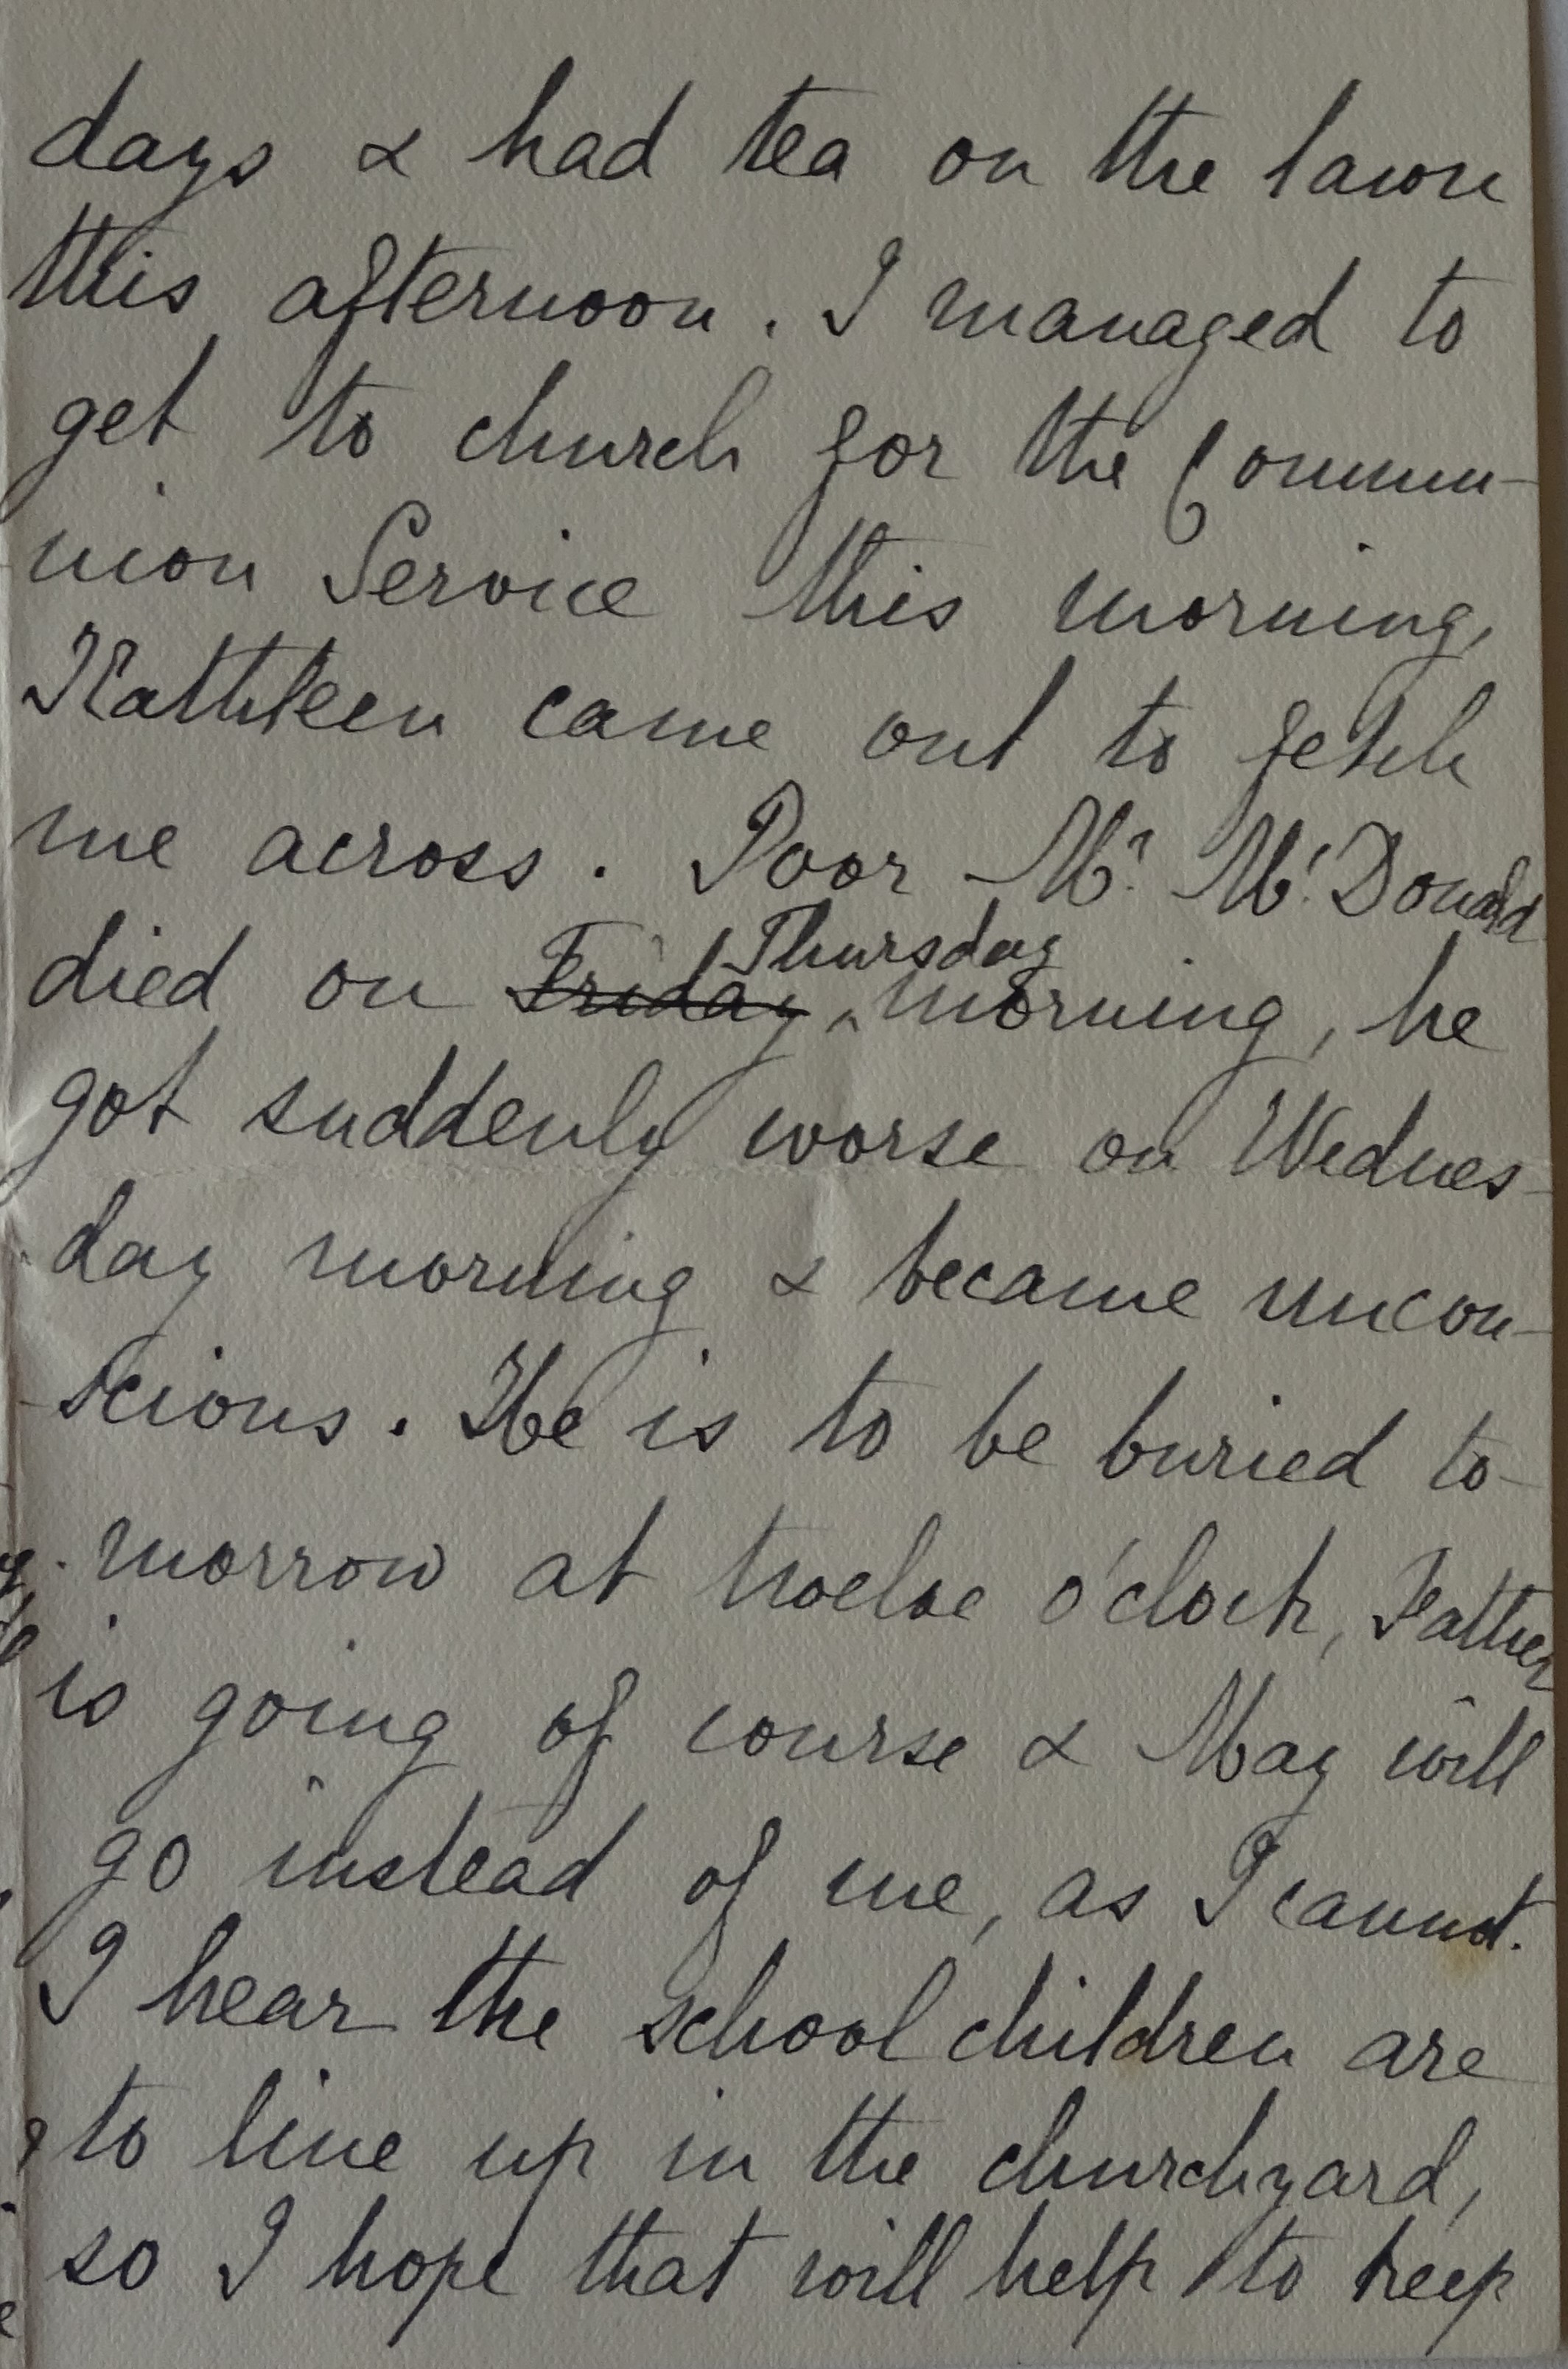 days & had tea on the lawn
this afternoon. I managed to
get to church for the Commu-
nion Service this morning,
Kathleen came out to fetch
me across. Poor Mr. McDonald
died on Friday ^Thursday morning, he
got suddenly worse on Wednes-
day morning & became uncon-
scious. He is to be buried to-
morrow at twelve o'clock, Father
is going of course & May will
go instead of me, as I cannot.
I hear the school children are
to line up in the churchyard,
so I hope that will help to keep